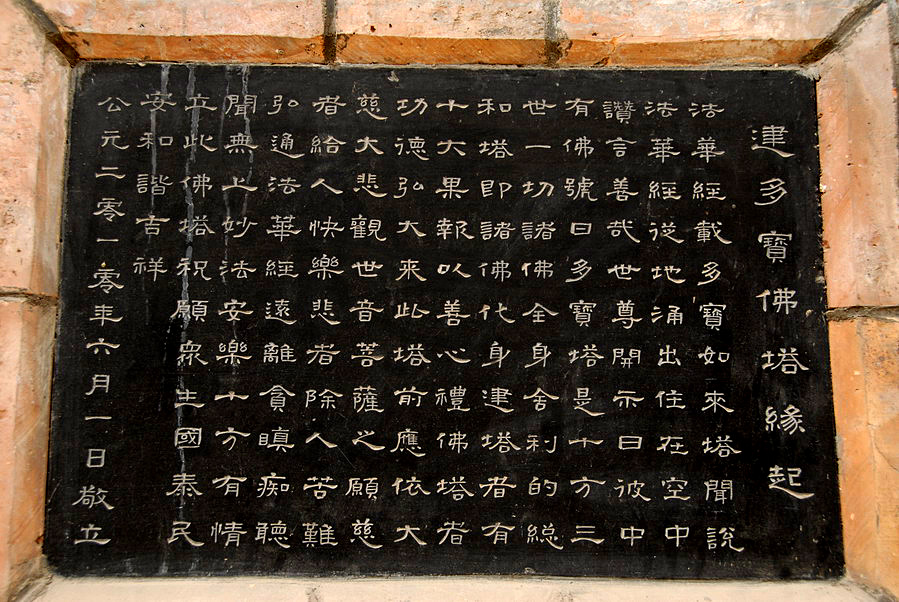 建多寶佛塔緣起
法華經載多寶如來塔聞說
法華經從地涌出住在空中
讚言善哉世尊開示曰彼中
有佛號曰多寶塔是十方三
世一切諸佛全身舍利的総
和塔即諸佛代身建塔者有
十大果報以善心禮佛塔者
功德弘大來此塔前應依大
慈大悲觀世音菩薩之願慈
者給人快樂悲者除人苦難
弘通法華經遠離貪瞋痴聽
聞無上妙法安樂十方有情
立此佛塔祝願眾生國泰民
安和諧吉祥
公元二零一零年六月一日敬立